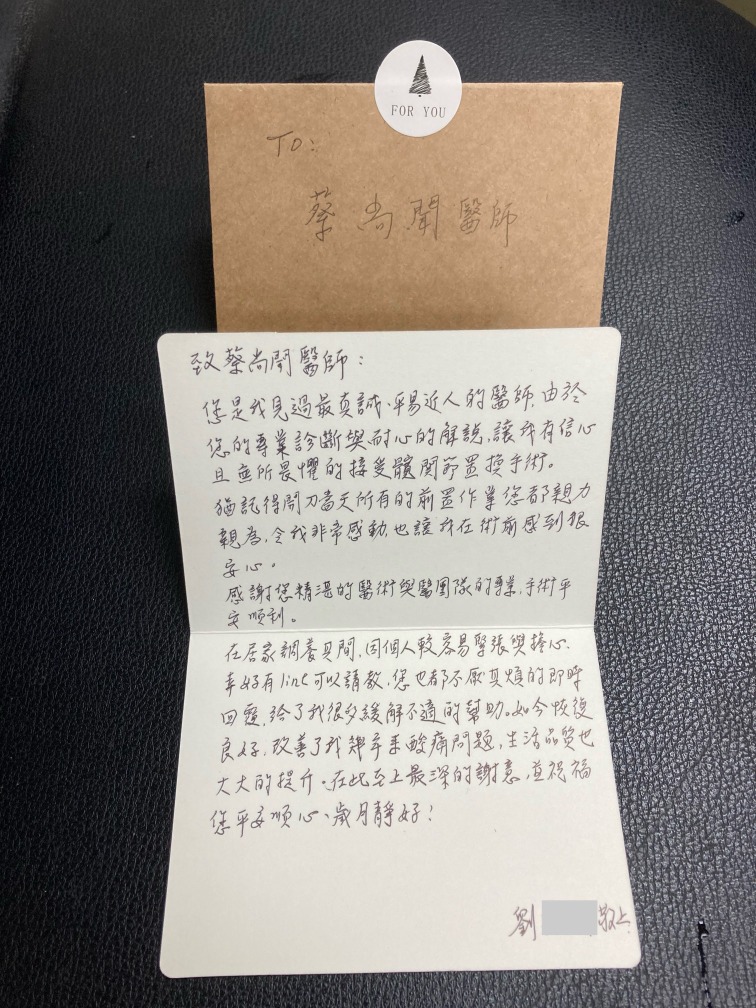 FOR YOU
TO:
蔡尚聞醫師
致蔡尚聞醫師:
您是我見過最真誠、平易近人的醫師,由於
您的專業診斷與耐心的解說,讓我有信心
且無所畏懼的接受髖關節置換手術。
猶記得開刀當天所有的前置作業您都親力
親為,令我非常感動,也讓我在術前感到很
安心。
感謝您精湛的醫術與醫團隊的專業,手術平
安順利。
在居家調養其間,因個人較容易緊張與擔心、
幸好有line可以請教,您也都不厭其煩的即時
回覆,給了我很多緩解不適的幫助。如今恢復
良好,改善了我幾年來酸痛問題,生活品質也
大大的提升。在此至上最深的謝意,並祝福
您平安順心、歲月靜好!
劉 敬上